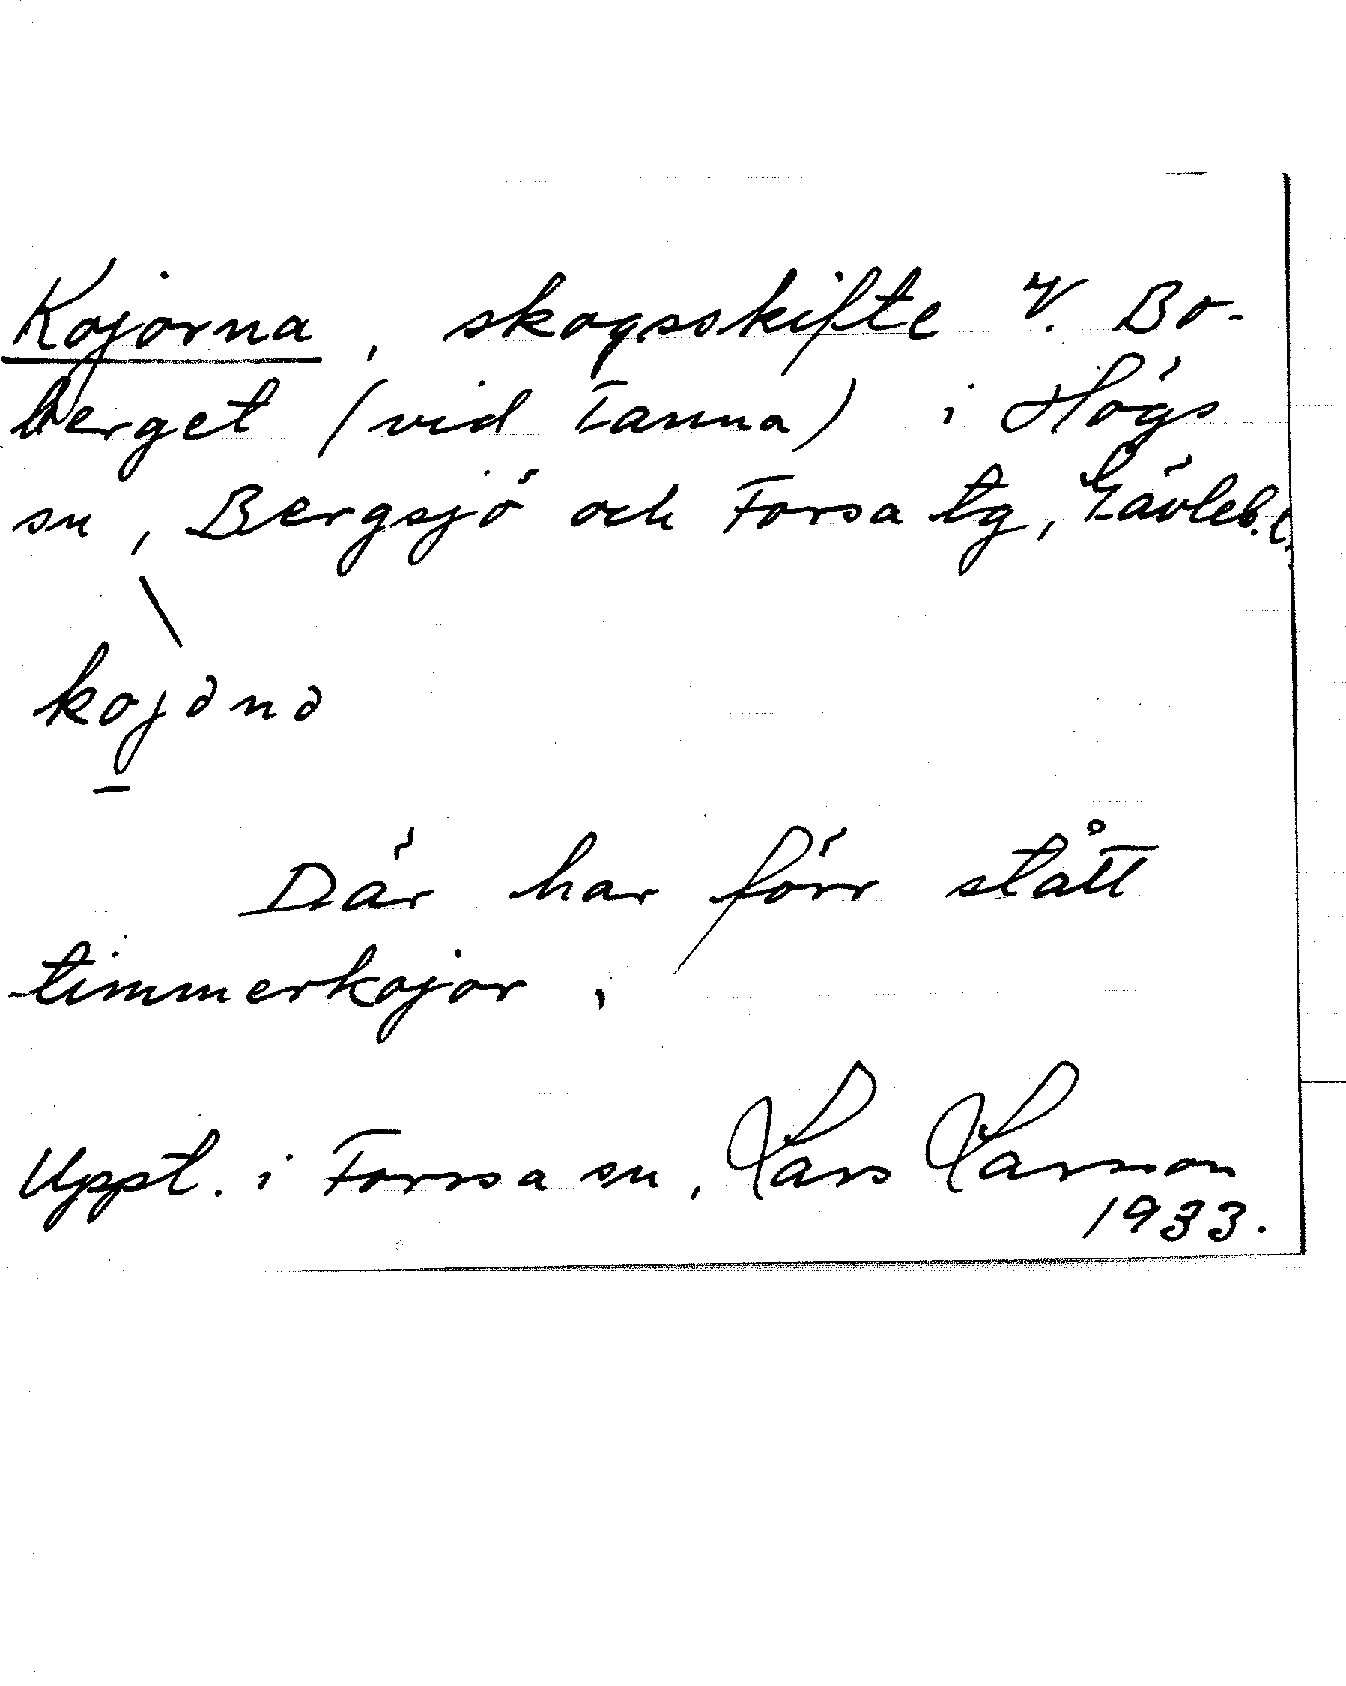 Kojorna, skogsskifte V. Bo-
berget (vid Tanna) i Högs
sn, Bergsjö och Forsa tg, Gävleb. l.
\
kojənə
Där har förr stått
timmerkojor.
Uppt. i Forssa sn, Lars Larsson
1933.